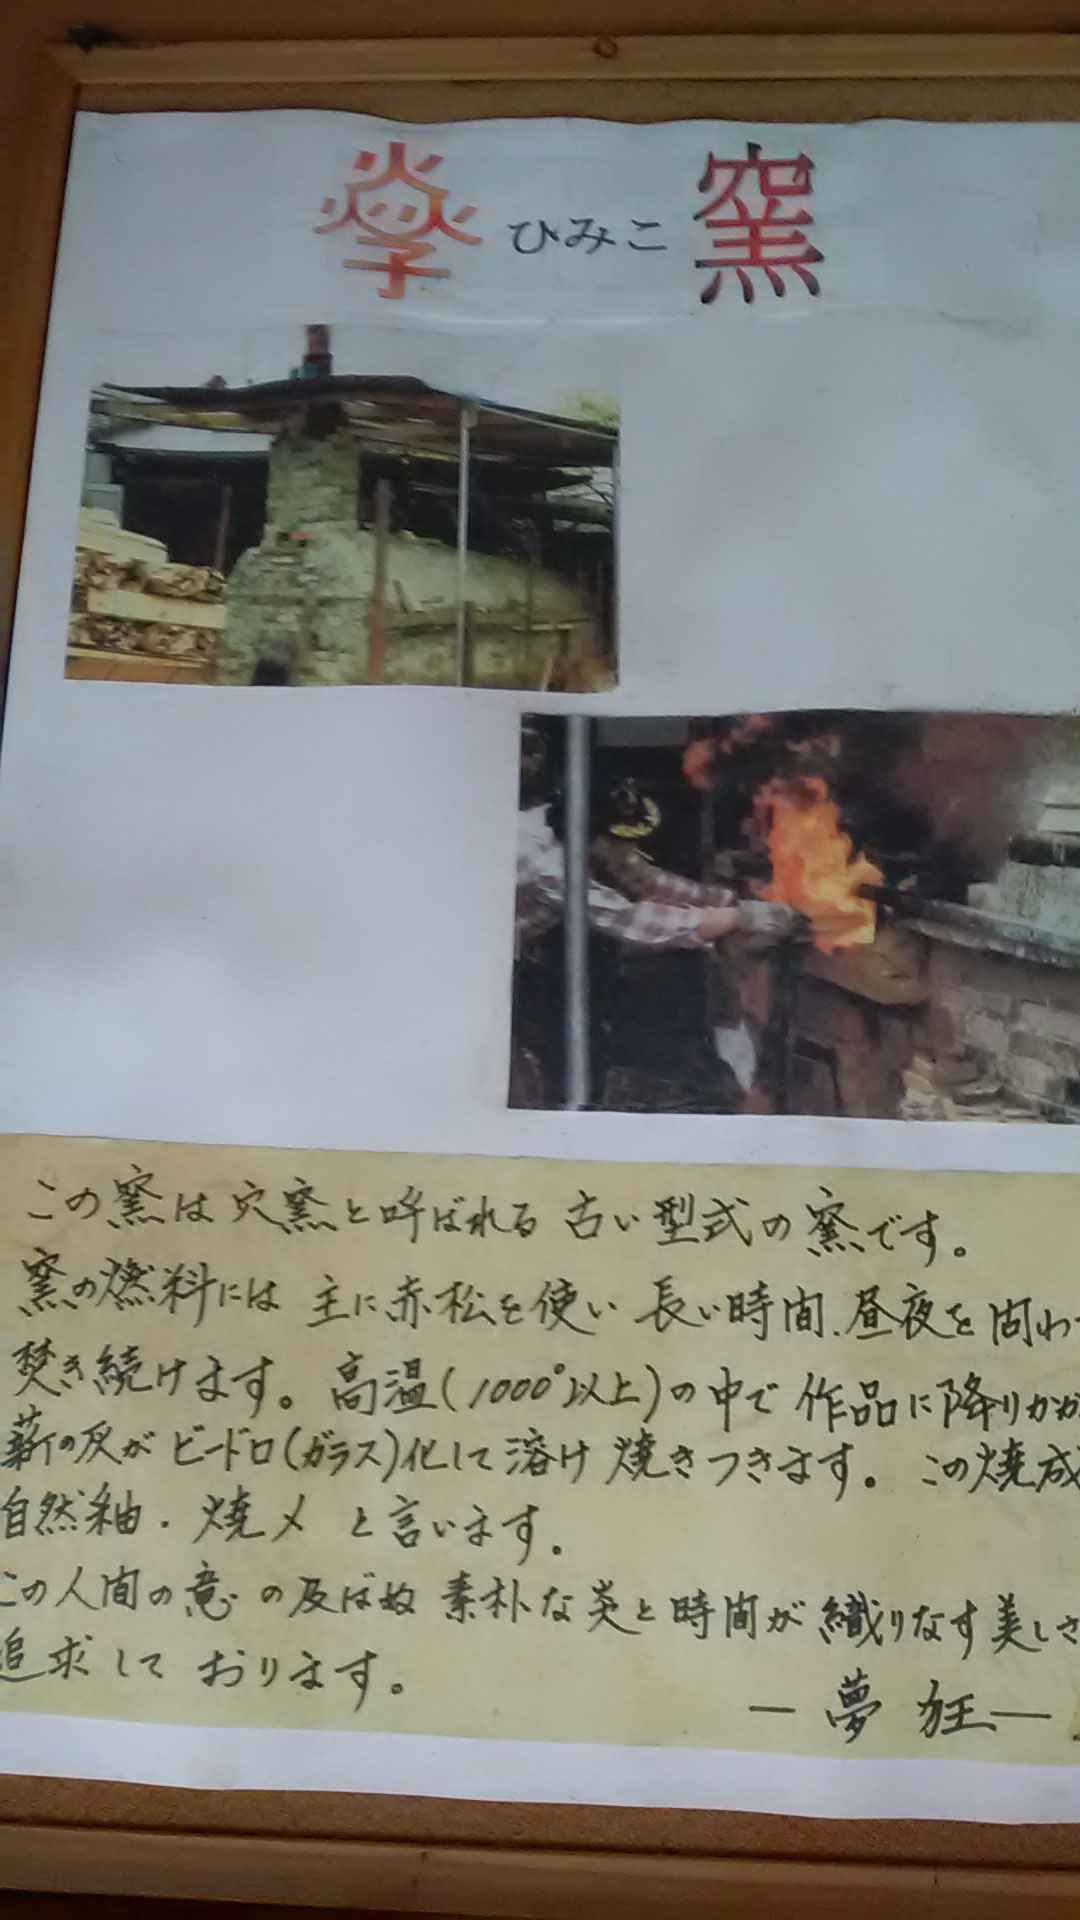 ひみこ 窯
この窯は穴窯と呼ばれる 古い型式の窯です。
窯の燃料には 主に赤松を使い 長い時間、昼夜を問わ
焚き続けます。高温(1000°以上)の中で 作品に降りかか
薪の灰が ビードロ(ガラス)化して溶け 焼きつきます。この焼成
自然釉・焼〆 と言います。
この人間の意の及ばぬ 素朴な炎と時間が織りなす美しさ
追求して おります。
― 夢 ―